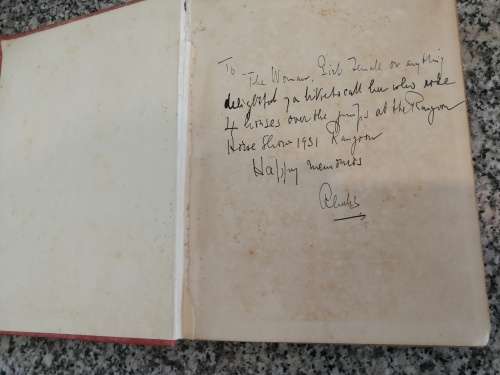 To
The Woman, Girl, Female or anything
delightful you like to call her who rode
4 horses over the jumps at the Rangoon
Horse Show 1931 Rangoon
Happy memories